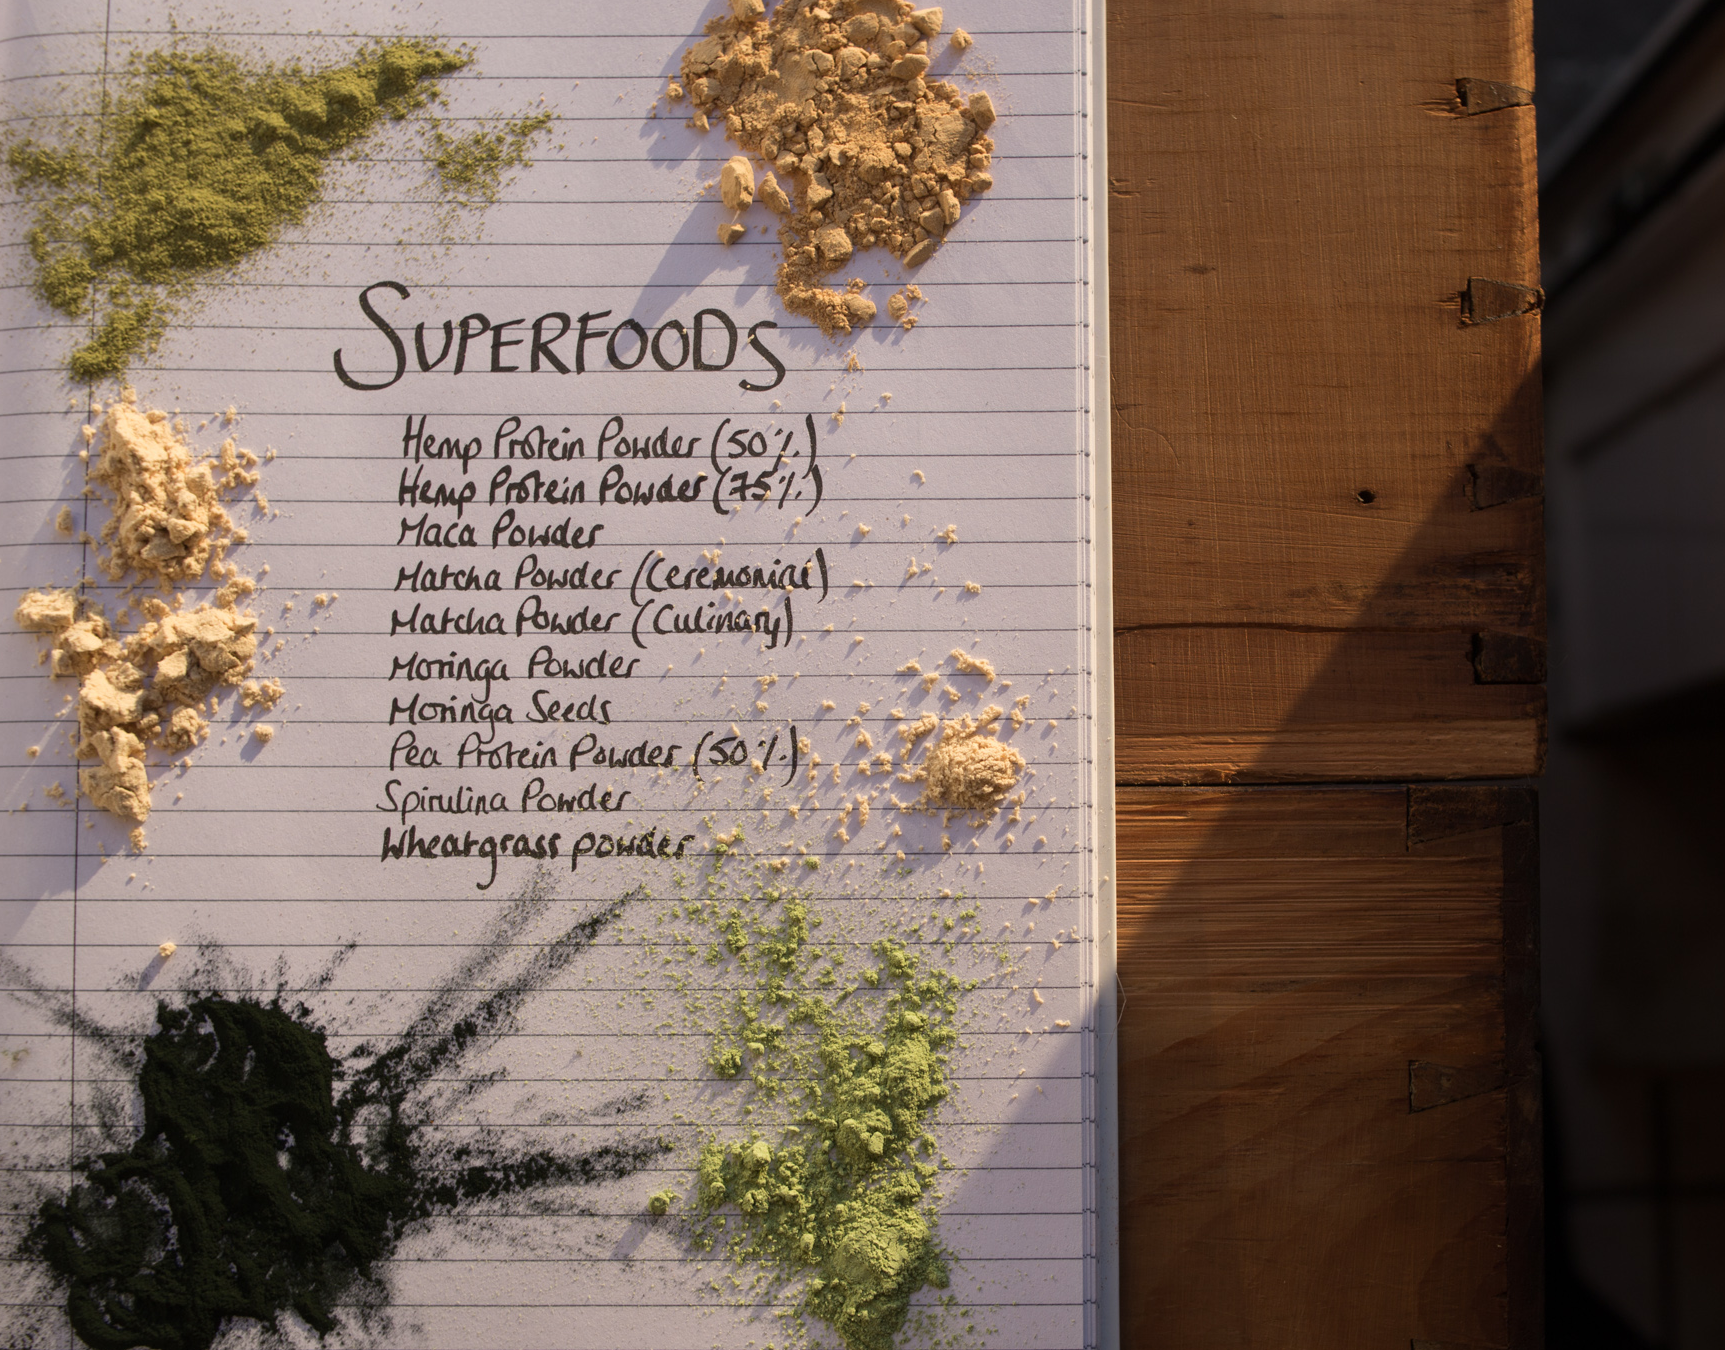 SUPERFOODS
Hemp Protein Powder (50%)
Hemp Protein Powder (75%)
Maca Powder
Matcha Powder (Ceremonial)
Matcha Powder (Culinary)
Moringa Powder
Moringa Seeds
Pea Protein Powder (50%)
Spirulina Powder
Wheatgrass powder